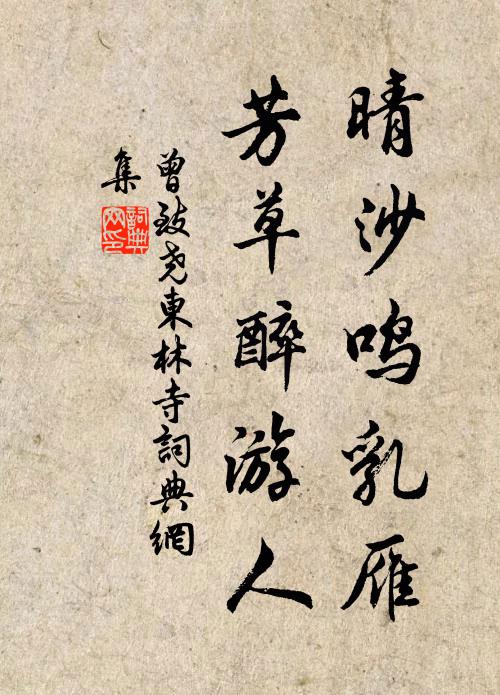 晴沙鸣乳雁
芳草醉游人
曾致尧東林寺詞典網
集
詞典
网印